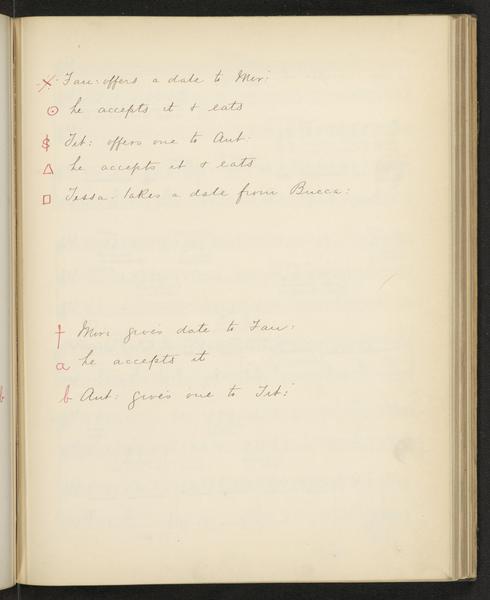 X Fau: offers a date to Mor:
⊙ he accepts it & eats
$ Tit: offers one to Ant:
△ he accepts it & eats
□ Tessa: takes a date from Bucca:
† Mor: gives date to Fau:
a he accepts it
b Ant: gives one to Tit:
b